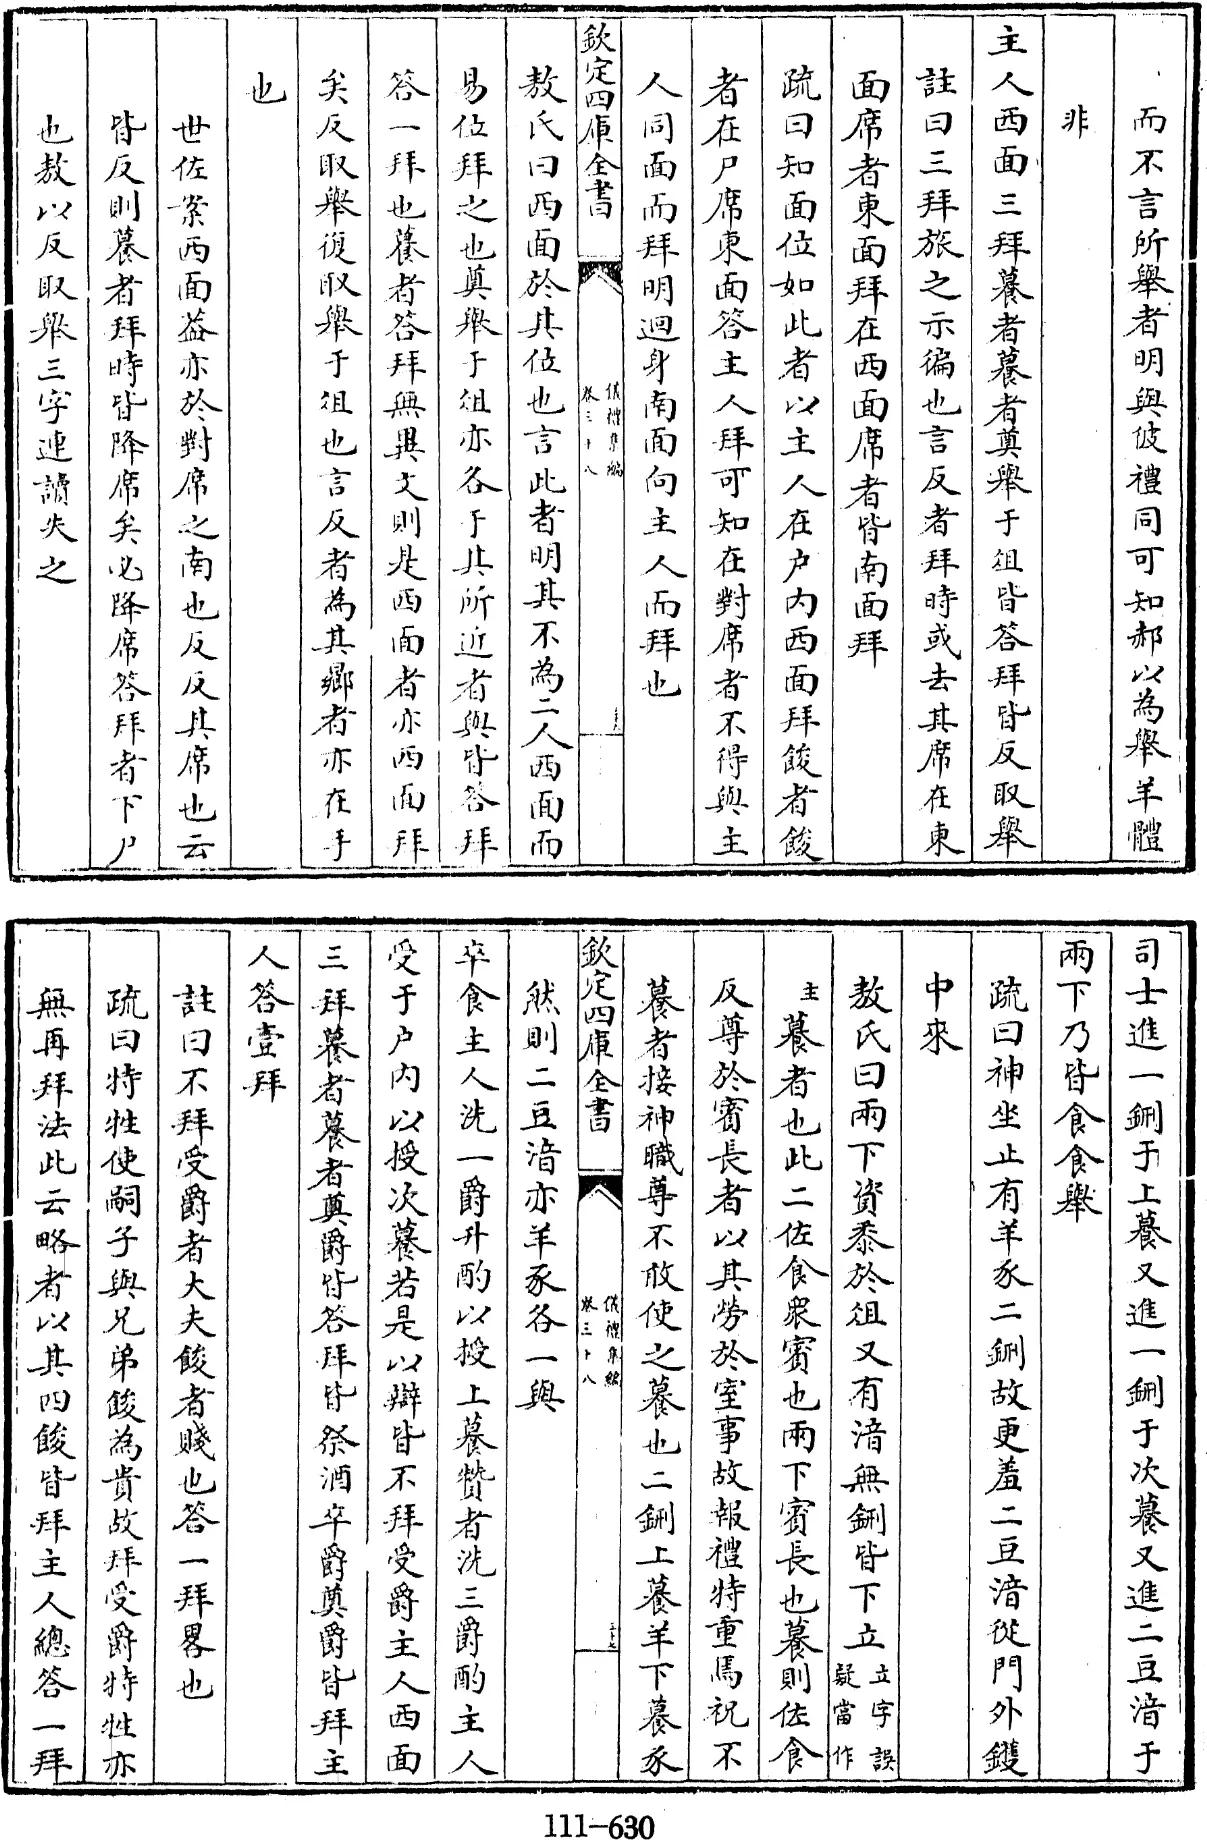 而不言所舉者明與彼禮同可知郝以為舉羊體
非
主人西面三拜䭆者䭆者奠舉于俎皆答拜皆反取舉
註曰三拜旅之示徧也言反者拜時或去其席在東
面席者東面拜在西面席者皆南面拜
疏曰知面位如此者以主人在户内西面拜餕者餕
者在尸席東面答主人拜可知在對席者不得與主
人同面而拜明迴身南面向主人而拜也
欽定四庫全書
儀禮集編
卷三十八
敖氏曰西面於其位也言此者明其不為二人西面而
易位拜之也奠舉于俎亦各于其所近者與皆答拜
答一拜也䭆者答拜無異文則是西面者亦西面拜
矣反取舉復取舉于俎也言反者為其鄉者亦在手
也
世佐案西面蓋亦於對席之南也反反其席也云
皆反則䭆者拜時皆降席矣必降席答拜者下尸
也敖以反取舉三字連讀失之
司士進一鉶于上䭆又進一鉶于次䭆又進二豆湆于
兩下乃皆食食舉
疏曰神坐止有羊豕二鉶故更羞二豆湆從門外鑊
中來
敖氏曰兩下資黍於俎又有湆無鉶皆下立立字誤疑當作
主䭆者也此二佐食衆賓也兩下賓長也䭆則佐食
反尊於賓長者以其勞於室事故報禮特重焉祝不
䭆者接神職尊不敢使之䭆也二鉶上䭆羊下䭆豕
欽定四庫全書
儀禮集編
卷三十八
然則二豆湆亦羊豕各一與
卒食主人洗一爵升酌以授上䭆贊者洗三爵酌主人
受于户内以授次䭆若是以辯皆不拜受爵主人西面
三拜䭆者䭆者奠爵皆答拜皆祭酒卒爵奠爵皆拜主
人答壹拜
註曰不拜受爵者大夫餕者賤也答一拜畧也
疏曰特牲使嗣子與兄弟餕為貴故拜受爵特牲亦
無再拜法此云略者以其四餕皆拜主人總答一拜
111-630